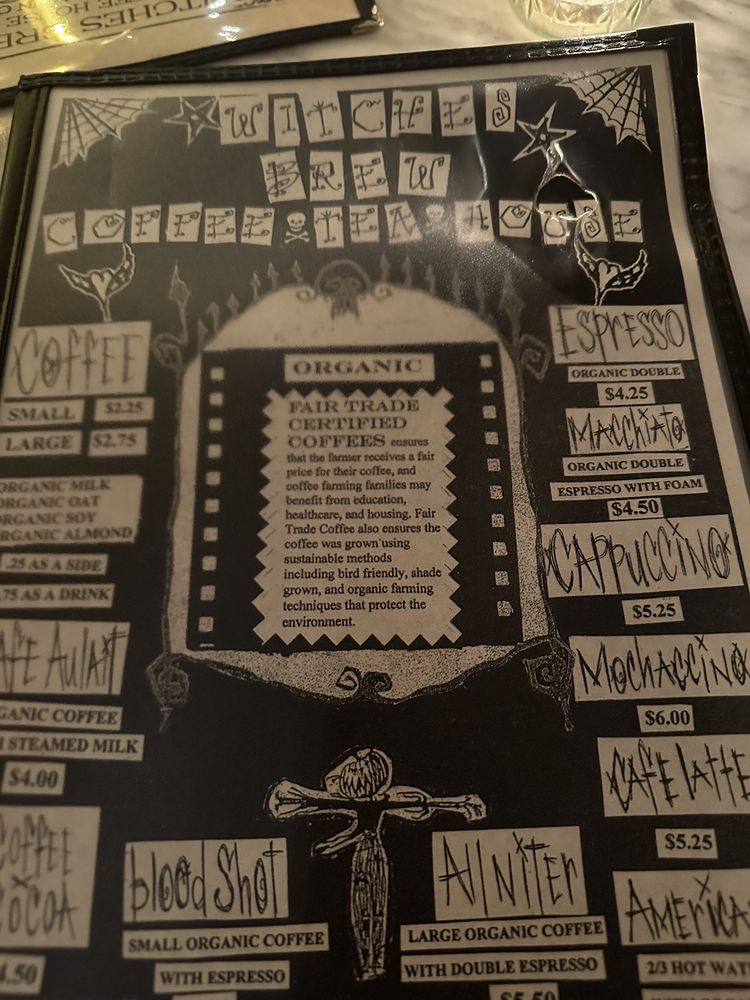 WITCHES
BREW
COFFEE TEA HOUSE
COFFEE
SMALL $2.25
LARGE $2.75
ORGANIC MILK
ORGANIC OAT
ORGANIC SOY
ORGANIC ALMOND
.25 AS A SIDE
.75 AS A DRINK
AFE AulAiT
GANIC COFFEE
STEAMED MILK
$4.00
COFFEE
COCOA
4.50
ORGANIC
FAIR TRADE
CERTIFIED
COFFEES ensures
that the farmer receives a fair
price for their coffee, and
coffee farming families may
benefit from education,
healthcare, and housing. Fair
Trade Coffee also ensures the
coffee was grown using
sustainable methods
including bird friendly, shade
grown, and organic farming
techniques that protect the
environment.
blood Shot
SMALL ORGANIC COFFEE
WITH ESPRESSO
All NiTER
LARGE ORGANIC COFFEE
WITH DOUBLE ESPRESSO
$5.50
ESPRESSO
ORGANIC DOUBLE
$4.25
MACChiATo
ORGANIC DOUBLE
ESPRESSO WITH FOAM
$4.50
CAPPUCCINO
$5.25
MochACCiNO
$6.00
CAFE lATTE
$5.25
AMERiCA
2/3 HOT WAT